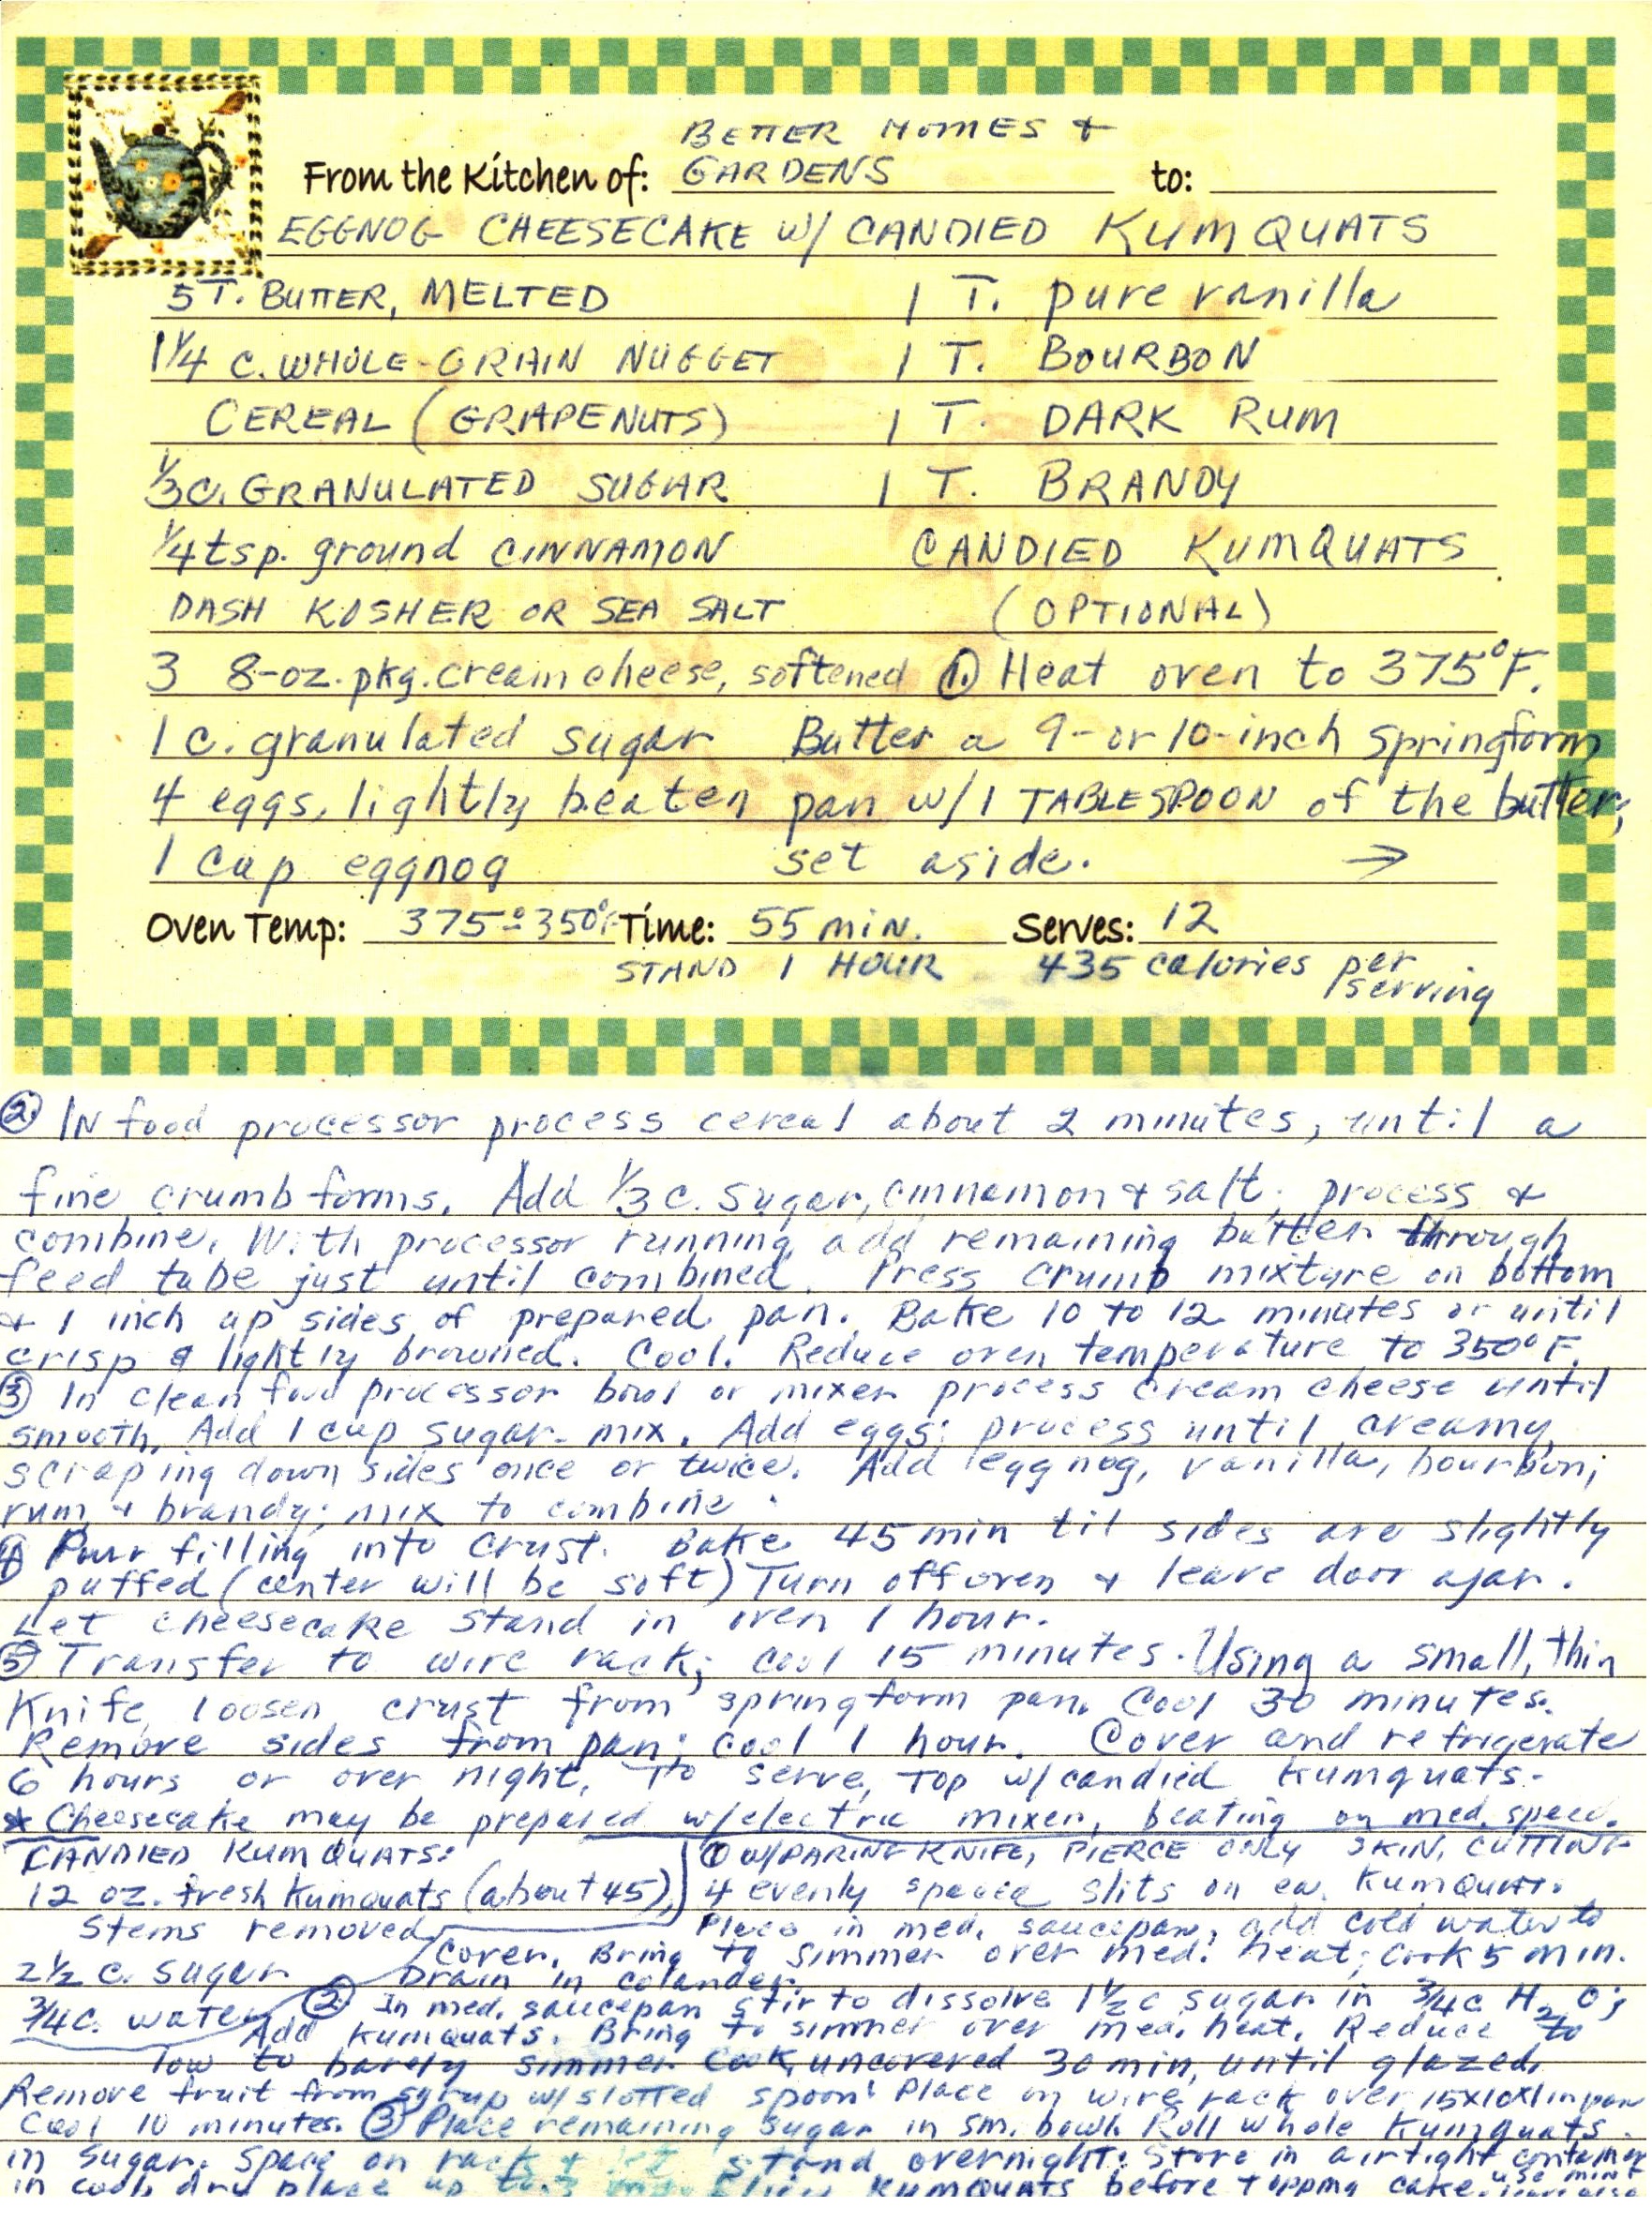 BETTER HOMES &
From the Kitchen of: GARDENS to:
EGGNOG CHEESECAKE W/ CANDIED KUMQUATS
5 T. BUTTER, MELTED
1 1/4 C. WHOLE-GRAIN NUGGET
CEREAL (GRAPENUTS)
1/3 C. GRANULATED SUGAR
1/4 tsp. ground CINNAMON
DASH KOSHER OR SEA SALT
3 8-oz. pkg. cream cheese, softened
1 c. granulated sugar
4 eggs, lightly beaten
1 cup eggnog
1 T. pure vanilla
1 T. BOURBON
1 T. DARK RUM
1 T. BRANDY
CANDIED KUMQUATS
(OPTIONAL)
① Heat oven to 375°F.
Butter a 9- or 10-inch springform
pan w/1 TABLESPOON of the butter;
set aside. →
Oven Temp: 375°-350°F Time: 55 MIN. Serves: 12
STAND 1 HOUR 435 calories per
serving
② IN food processor process cereal about 2 minutes, until a
fine crumb forms. Add 1/3 c. sugar, cinnamon & salt; process &
combine. With processor running, add remaining butter through
feed tube just until combined. Press crumb mixture on bottom
& 1 inch up sides of prepared pan. Bake 10 to 12 minutes or until
crisp & lightly browned. Cool. Reduce oven temperature to 350°F.
③ In clean food processor bowl or mixer process cream cheese until
smooth. Add 1 cup sugar - mix. Add eggs; process until creamy,
scraping down sides once or twice. Add eggnog, vanilla, bourbon,
rum & brandy; mix to combine.
④ Pour filling into crust. Bake 45 min til sides are slightly
puffed (center will be soft) Turn off oven & leave door ajar.
Let cheesecake stand in oven 1 hour.
⑤ Transfer to wire rack; cool 15 minutes. Using a small, thin
Knife, loosen crust from springform pan. Cool 30 minutes.
Remove sides from pan; cool 1 hour. Cover and refrigerate
6 hours or over night. To serve, top w/ candied kumquats.
* Cheesecake may be prepared w/electric mixer, beating on med. speed.
CANDIED KUMQUATS:
12 oz. fresh kumquats (about 45),
stems removed
2 1/2 c. sugar
3/4 c. water
① W/PARING KNIFE, PIERCE ONLY SKIN, CUTTING
4 evenly spaced slits on ea. KUMQUAT.
Place in med. saucepan, add cold water to
cover. Bring to simmer over med. heat; cook 5 min.
Drain in colander.
② In med. saucepan stir to dissolve 1 1/2 c sugar in 3/4 c H2O;
Add kumquats. Bring to simmer over med. heat. Reduce to
low to barely simmer. Cook, uncovered 30 min, until glazed.
Remove fruit from syrup w/slotted spoon! Place on wire rack over 15x10x1 in pan
Cool 10 minutes. ③ Place remaining sugar in sm. bowl. Roll whole kumquats
in sugar. Space on rack & let stand overnight. Store in airtight container
in cool, dry place up to 3 KUMQUATS before topping cake. use mint